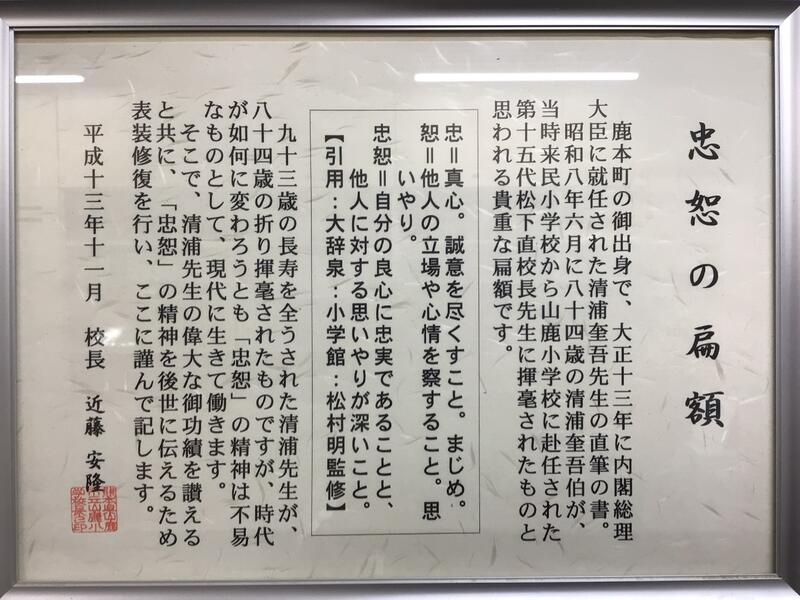 忠恕の扁額
鹿本町の御出身で、大正十三年に内閣総理
大臣に就任された清浦奎吾先生の直筆の書。
昭和八年六月に八十四歳の清浦奎吾伯が、
当時来民小学校から山鹿小学校に赴任された
第十五代松下直校長先生に揮毫されたものと
思われる貴重な扁額です。
忠＝真心。誠意を尽くすこと。まじめ。
恕＝他人の立場や心情を察すること。思
いやり。
忠恕＝自分の良心に忠実であることと、
他人に対する思いやりが深いこと。
【引用：大辞泉：小学館：松村明監修】
九十三歳の長寿を全うされた清浦先生が、
八十四歳の折り揮毫されたものですが、時代
が如何に変わろうとも「忠恕」の精神は不易
なものとして、現代に生きて働きます。
そこで、清浦先生の偉大な御功績を讃える
と共に、「忠恕」の精神を後世に伝えるため
表装修復を行い、ここに謹んで記します。
平成十三年十一月　校長　近藤　安隆